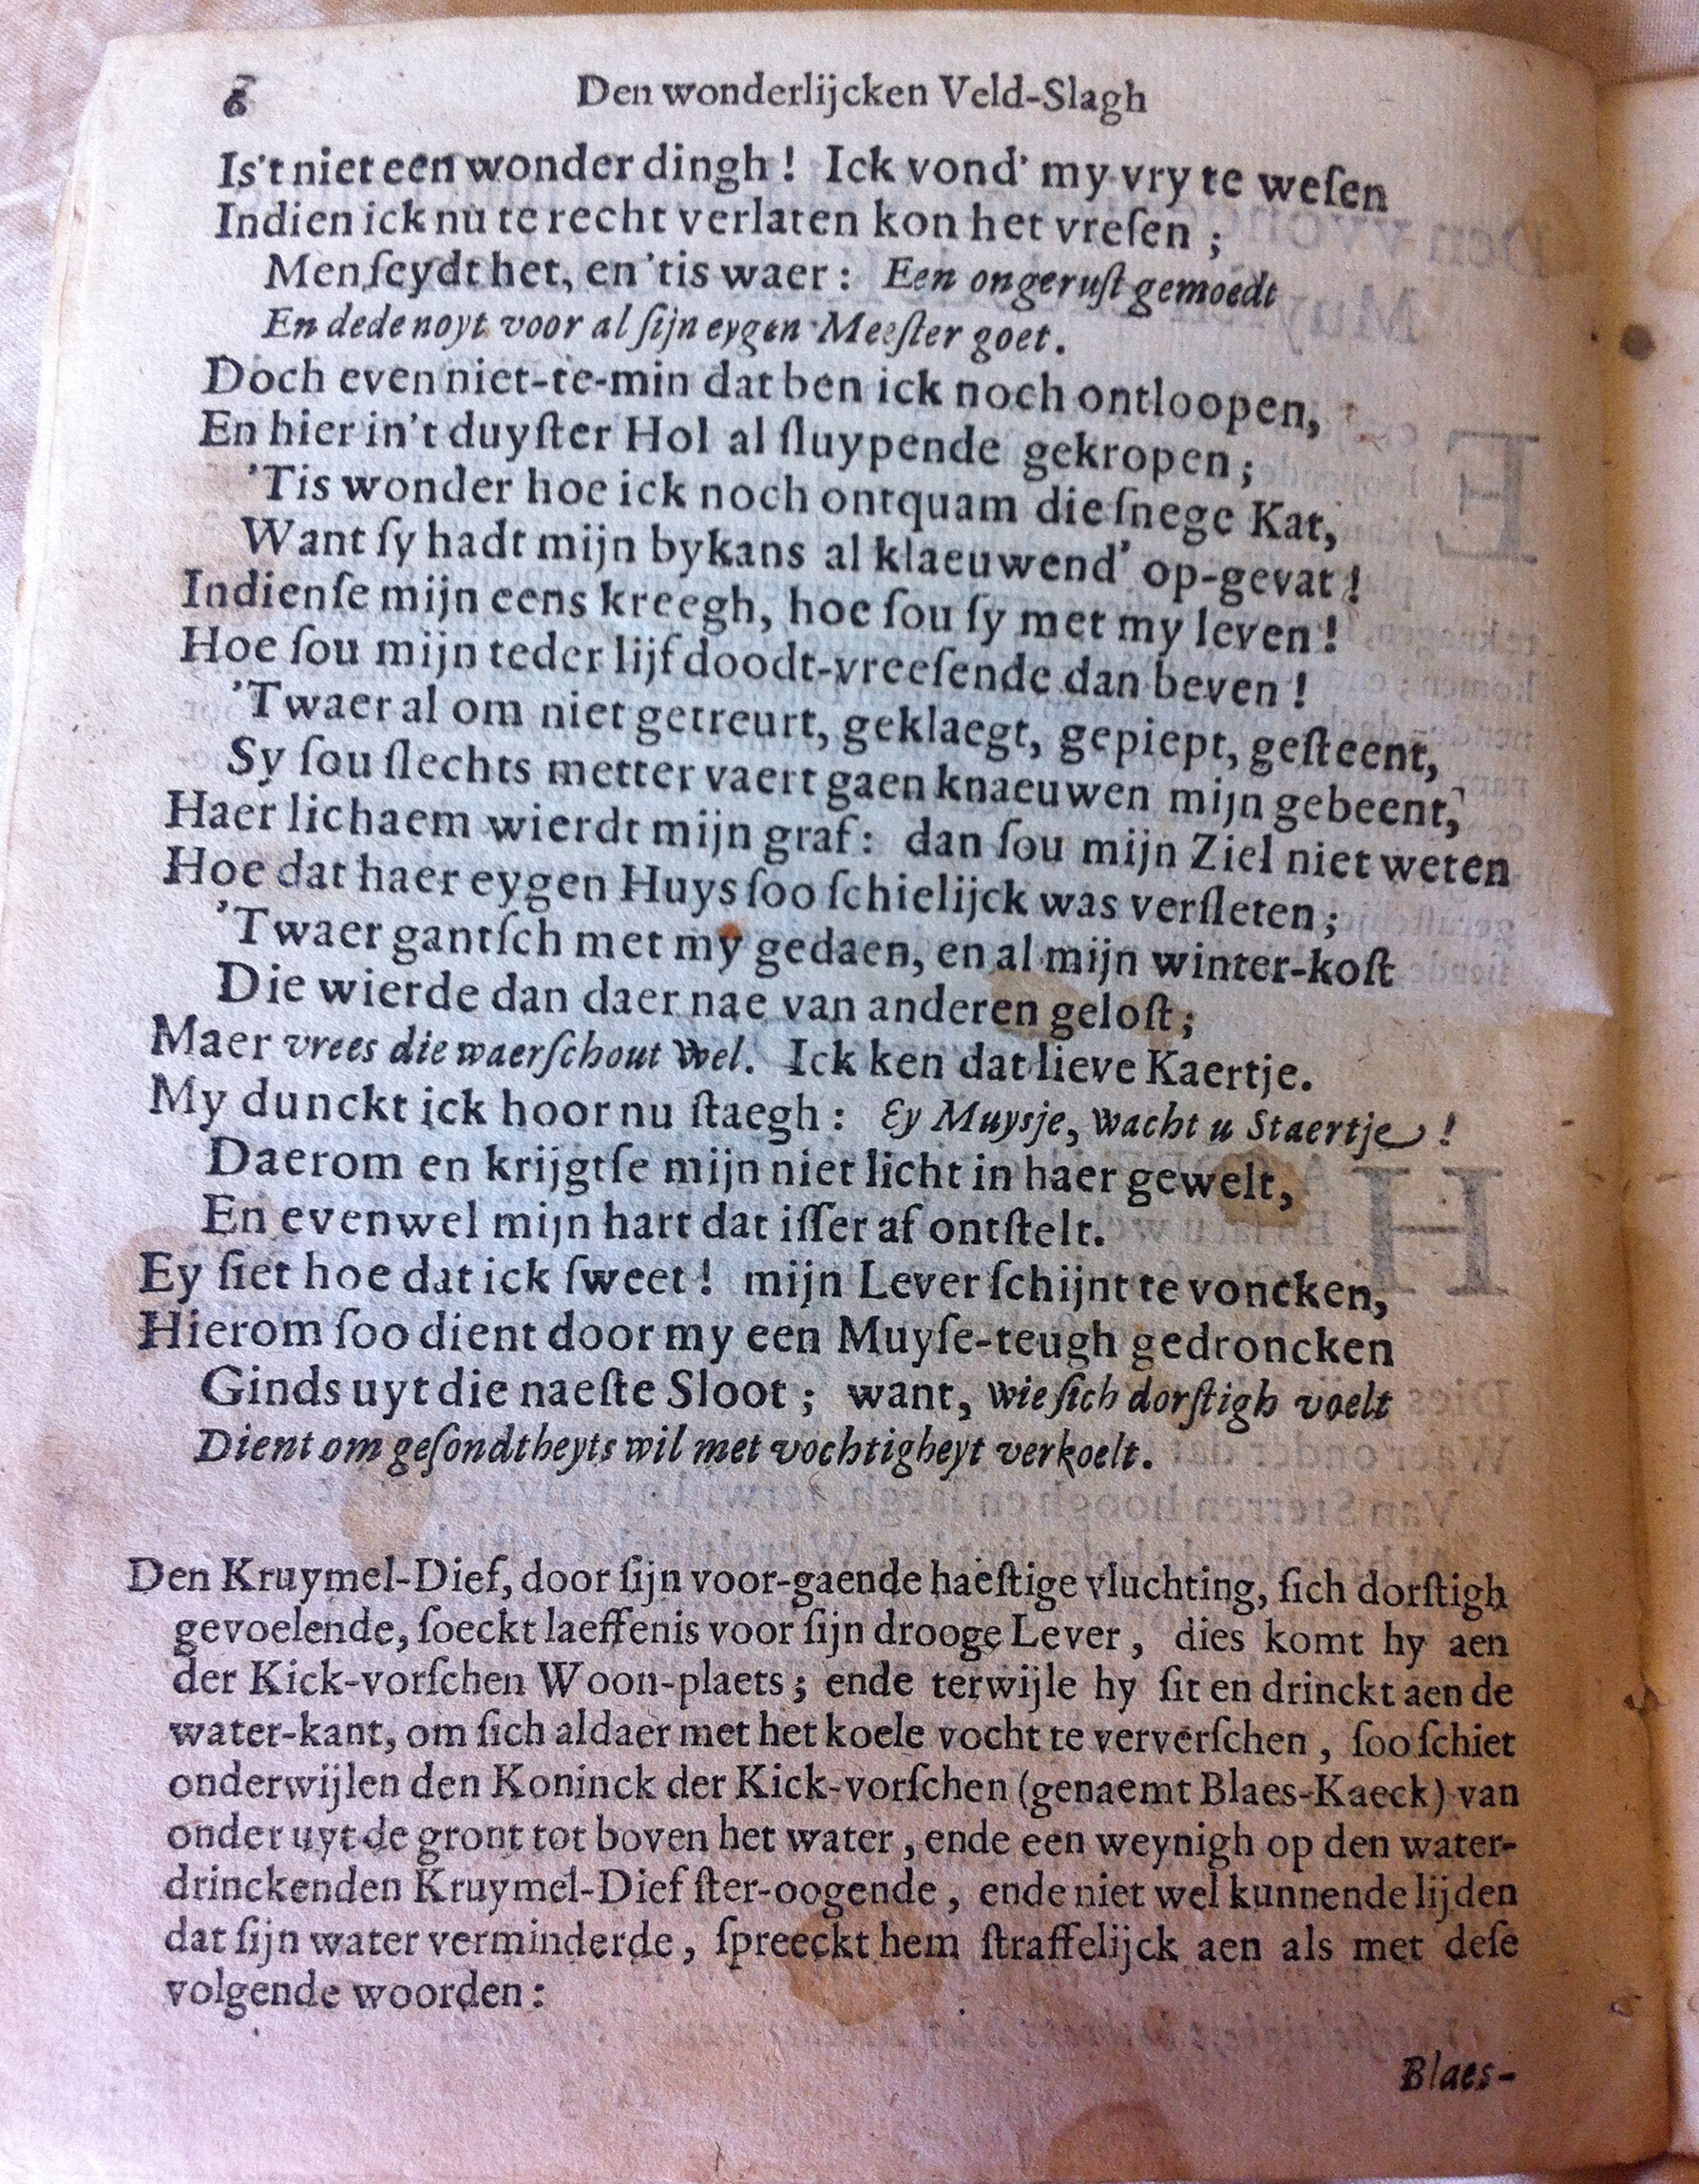 6 Den wonderlijcken Veld-Slagh
Is't niet een wonder dingh! Ick vond' my vry te weſen
Indien ick nu te recht verlaten kon het vreſen;
Men ſeydt het, en 'tis waer: Een ongeruſt gemoedt
En dede noyt voor al ſijn eygen Meeſter goet.
Doch even niet-te-min dat ben ick noch ontloopen,
En hier in't duyſter Hol al ſluypende gekropen;
'Tis wonder hoe ick noch ontquam die ſnege Kat,
Want ſy hadt mijn bykans al klaeuwend' op-gevat!
Indienſe mijn eens kreegh, hoe ſou ſy met my leven!
Hoe ſou mijn teder lijf doodt-vreeſende dan beven!
'Twaer al om niet getreurt, geklaegt, gepiept, geſteent,
Sy ſou ſlechts metter vaert gaen knaeuwen mijn gebeent,
Haer lichaem wierdt mijn graf: dan ſou mijn Ziel niet weten
Hoe dat haer eygen Huys ſoo ſchielijck was verſleten;
'Twaer gantſch met my gedaen, en al mijn winter-koſt
Die wierde dan daer nae van anderen geloſt;
Maer vrees die waerſchout wel. Ick ken dat lieve Kaertje.
My dunckt ick hoor nu ſtaegh: Ey Muysje, wacht u Staertje!
Daerom en krijgtſe mijn niet licht in haer gewelt,
En evenwel mijn hart dat iſſer af ontſtelt.
Ey ſiet hoe dat ick ſweet! mijn Lever ſchijnt te voncken,
Hierom ſoo dient door my een Muyſe-teugh gedroncken
Ginds uyt die naeſte Sloot; want, wie ſich dorſtigh voelt
Dient om geſondtheyts wil met vochtigheyt verkoelt.
Den Kruymel-Dief, door ſijn voor-gaende haeſtige vluchting, ſich dorſtigh
gevoelende, ſoeckt laeffenis voor ſijn drooge Lever, dies komt hy aen
der Kick-vorſchen Woon-plaets; ende terwijle hy ſit en drinckt aen de
water-kant, om ſich aldaer met het koele vocht te ververſchen, ſoo ſchiet
onderwijlen den Koninck der Kick-vorſchen (genaemt Blaes-Kaeck) van
onder uyt de gront tot boven het water, ende een weynigh op den water-
drinckenden Kruymel-Dief ſter-oogende, ende niet wel kunnende lijden
dat ſijn water verminderde, ſpreeckt hem ſtraffelijck aen als met deſe
volgende woorden:
Blaes-